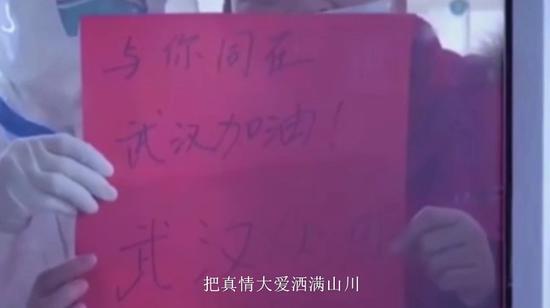 与你同在
武汉加油！
武汉
把真情大爱洒满山川